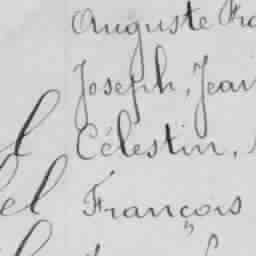 Auguste Fra
Joseph, Jean
Célestin,
el François